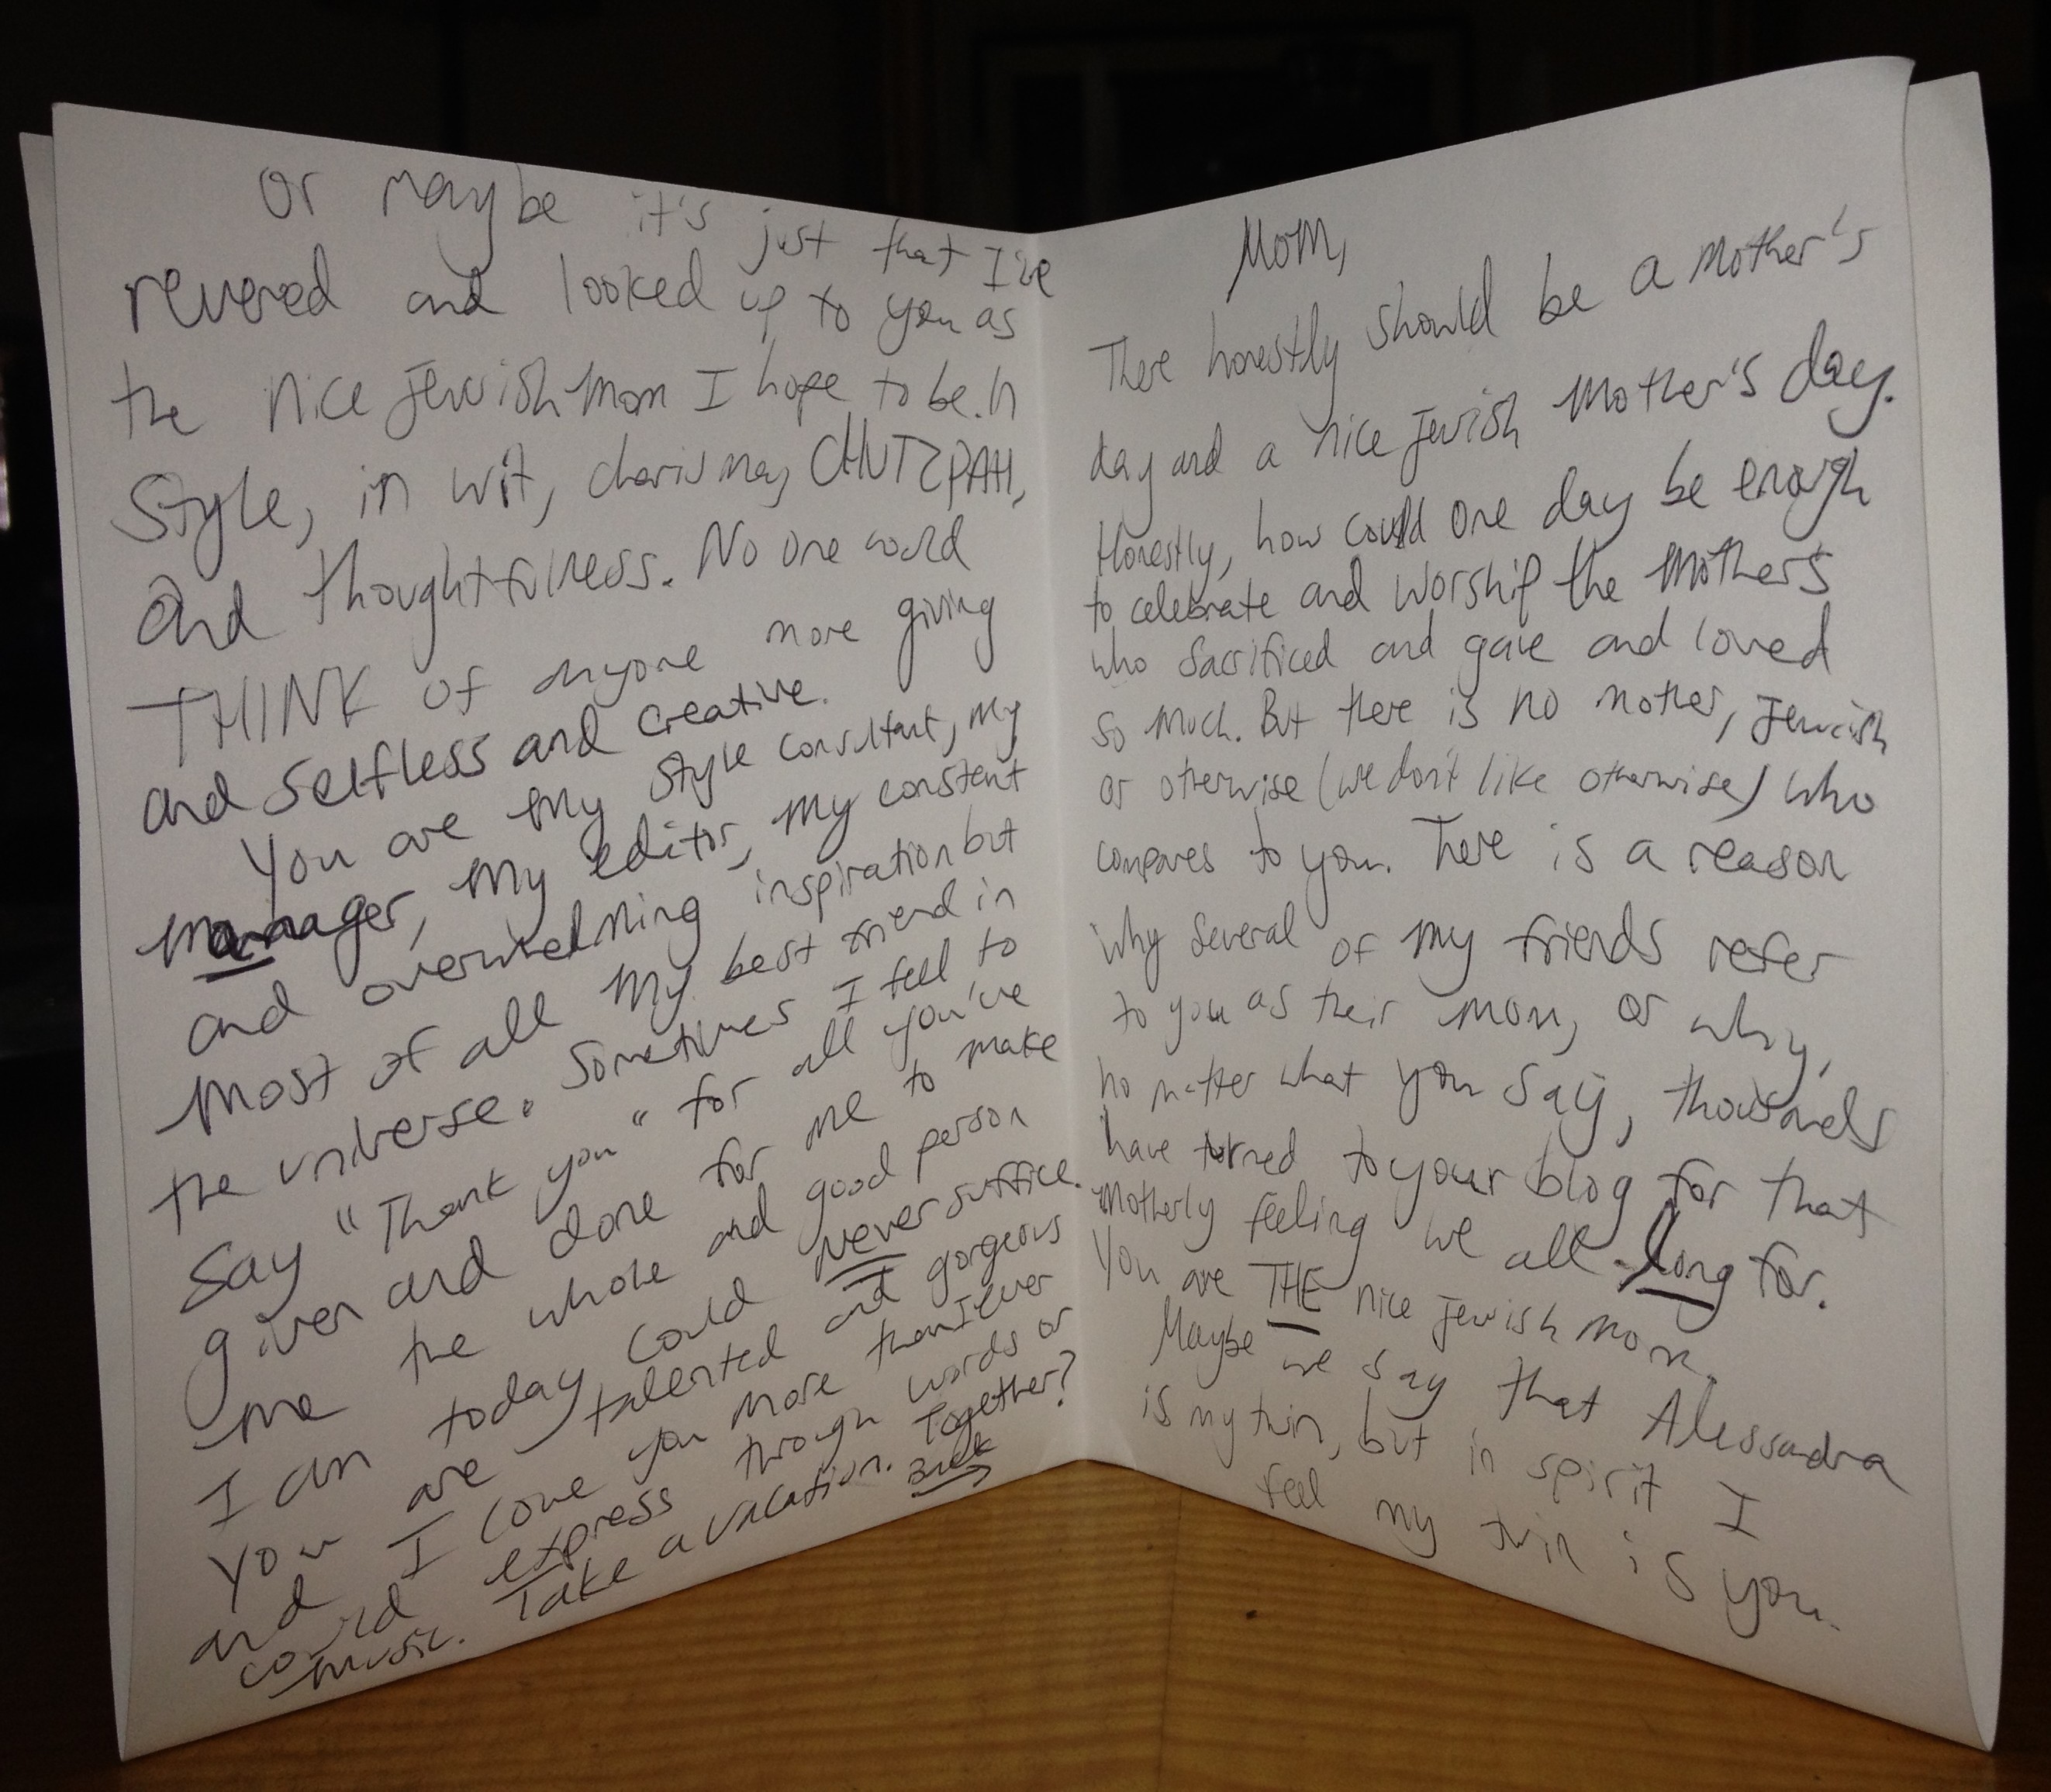 Mom,
There honestly should be a Mother's
day and a nice Jewish Mother's day.
Honestly, how could one day be enough
to celebrate and worship the Mothers
who sacrificed and gave and loved
so much. But there is no mother, Jewish
or otherwise (we don't like otherwise) who
compares to you. There is a reason
why several of my friends refer
to you as their mom, or why,
no matter what you say, thousands
have turned to your blog for that
motherly feeling we all long for.
You are THE nice Jewish mom.
Maybe we say that Alessandra
is my twin, but in spirit I
feel my twin is you.
Or maybe it's just that I've
revered and looked up to you as
the nice Jewish mom I hope to be. In
Style, in wit, charisma, CHUTZPAH,
and thoughtfulness. No one could
THINK of anyone more giving
and selfless and creative.
You are my style consultant, my
manager, my editor, my constant
and overwhelming inspiration but
most of all my best friend in
the universe. Sometimes I feel to
say "Thank you" for all you've
given and done for me to make
me the whole and good person
I am today could never suffice.
You are talented and gorgeous
and I love you more than I ever
could express through words or
music. Take a vacation. Together?
Back